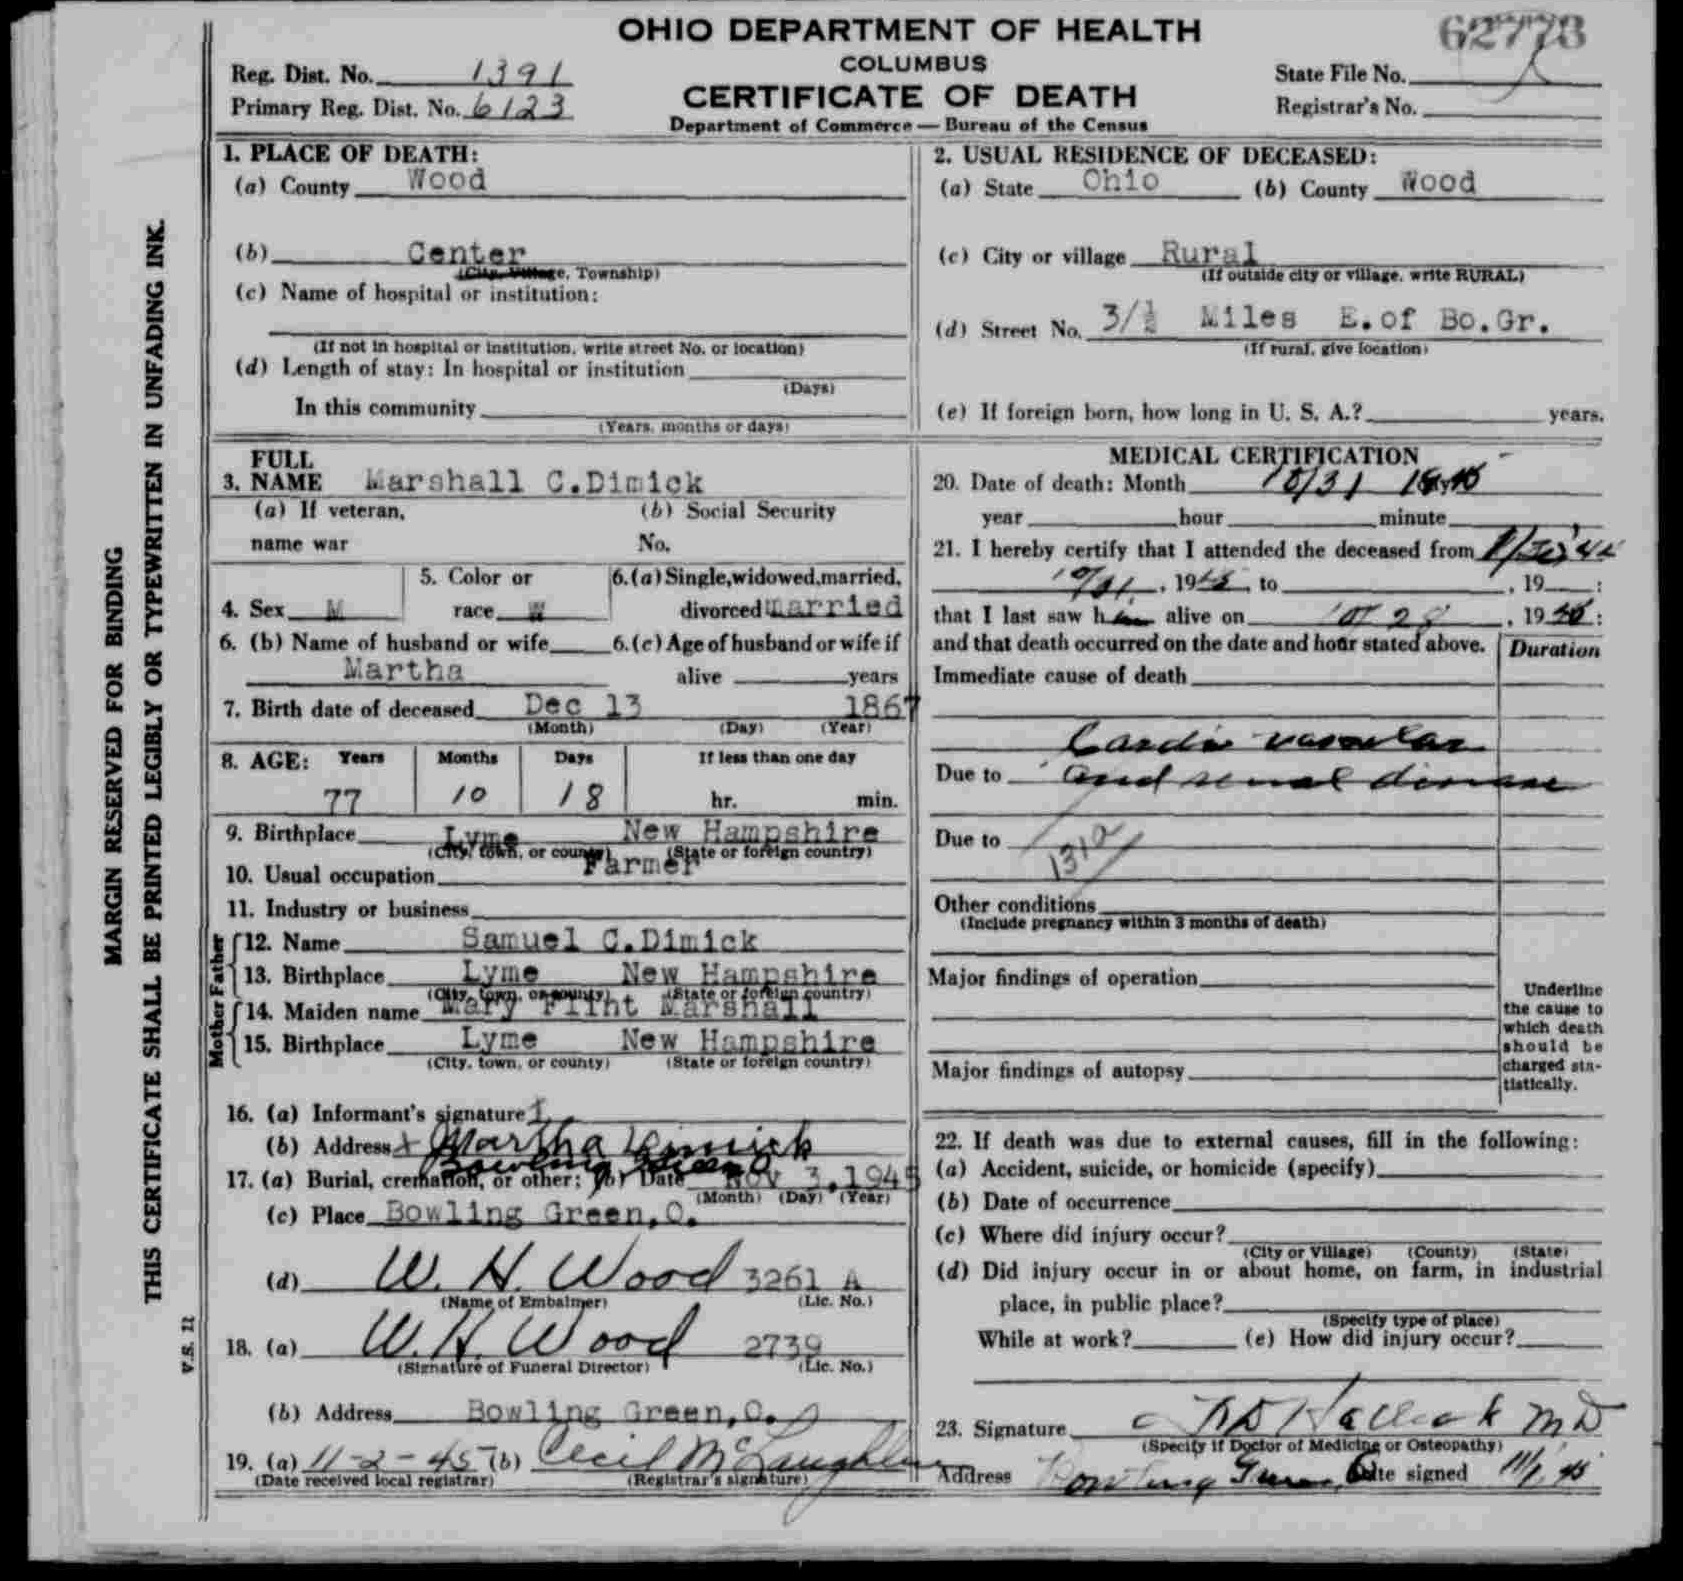 OHIO DEPARTMENT OF HEALTH
COLUMBUS
CERTIFICATE OF DEATH
Department of Commerce — Bureau of the Census
62773
Reg. Dist. No. 1391
Primary Reg. Dist. No. 6123
State File No.
Registrar's No.
MARGIN RESERVED FOR BINDING
THIS CERTIFICATE SHALL BE PRINTED LEGIBLY OR TYPEWRITTEN IN UNFADING INK.
V.S. 11
1. PLACE OF DEATH:
(a) County Wood
(b) Center
(City, Village, Township)
(c) Name of hospital or institution:
(If not in hospital or institution, write street No. or location)
(d) Length of stay: In hospital or institution
(Days)
In this community
(Years, months or days)
2. USUAL RESIDENCE OF DECEASED:
(a) State Ohio (b) County Wood
(c) City or village Rural
(If outside city or village, write RURAL)
(d) Street No. 3/½ Miles E.of Bo.Gr.
(If rural, give location)
(e) If foreign born, how long in U. S. A.? years.
3. FULL NAME Marshall C.Dimick
(a) If veteran, name war
(b) Social Security No.
4. Sex M
5. Color or race W
6. (a) Single, widowed, married, divorced married
6. (b) Name of husband or wife
Martha
6. (c) Age of husband or wife if alive years
7. Birth date of deceased Dec 13 1867
(Month) (Day) (Year)
8. AGE: Years Months Days If less than one day
77 10 18 hr. min.
9. Birthplace Lyme New Hampshire
(City, town, or county) (State or foreign country)
10. Usual occupation Farmer
11. Industry or business
Father
12. Name Samuel C.Dimick
13. Birthplace Lyme New Hampshire
(City, town, or county) (State or foreign country)
Mother
14. Maiden name Mary Flint Marshall
15. Birthplace Lyme New Hampshire
(City, town, or county) (State or foreign country)
16. (a) Informant's signature
(b) Address Martha Dimick
Bowling Green O
17. (a) Burial, cremation, or other; (b) Date Nov 3,1945
(Month) (Day) (Year)
(c) Place Bowling Green,O.
(d) W. H. Wood 3261 A
(Name of Embalmer) (Lic. No.)
18. (a) W. H. Wood 2739
(Signature of Funeral Director) (Lic. No.)
(b) Address Bowling Green,O.
19. (a) 11-2-45 (b) Cecil McLaughlin
(Date received local registrar) (Registrar's signature)
MEDICAL CERTIFICATION
20. Date of death: Month 10/31
year hour minute
21. I hereby certify that I attended the deceased from
10/31, 1945, to , 19 :
that I last saw him alive on 10/28, 1945:
and that death occurred on the date and hour stated above.
Duration
Immediate cause of death
Cardio vascular
Due to and renal disease
Due to
131a
Other conditions
(Include pregnancy within 3 months of death)
Major findings of operation
Major findings of autopsy
Underline the cause to which death should be charged statistically.
22. If death was due to external causes, fill in the following:
(a) Accident, suicide, or homicide (specify)
(b) Date of occurrence
(c) Where did injury occur?
(City or Village) (County) (State)
(d) Did injury occur in or about home, on farm, in industrial
place, in public place?
(Specify type of place)
While at work? (e) How did injury occur?
23. Signature Halleck MD
(Specify if Doctor of Medicine or Osteopathy)
Address Bowling Green, O Date signed 11/1/45